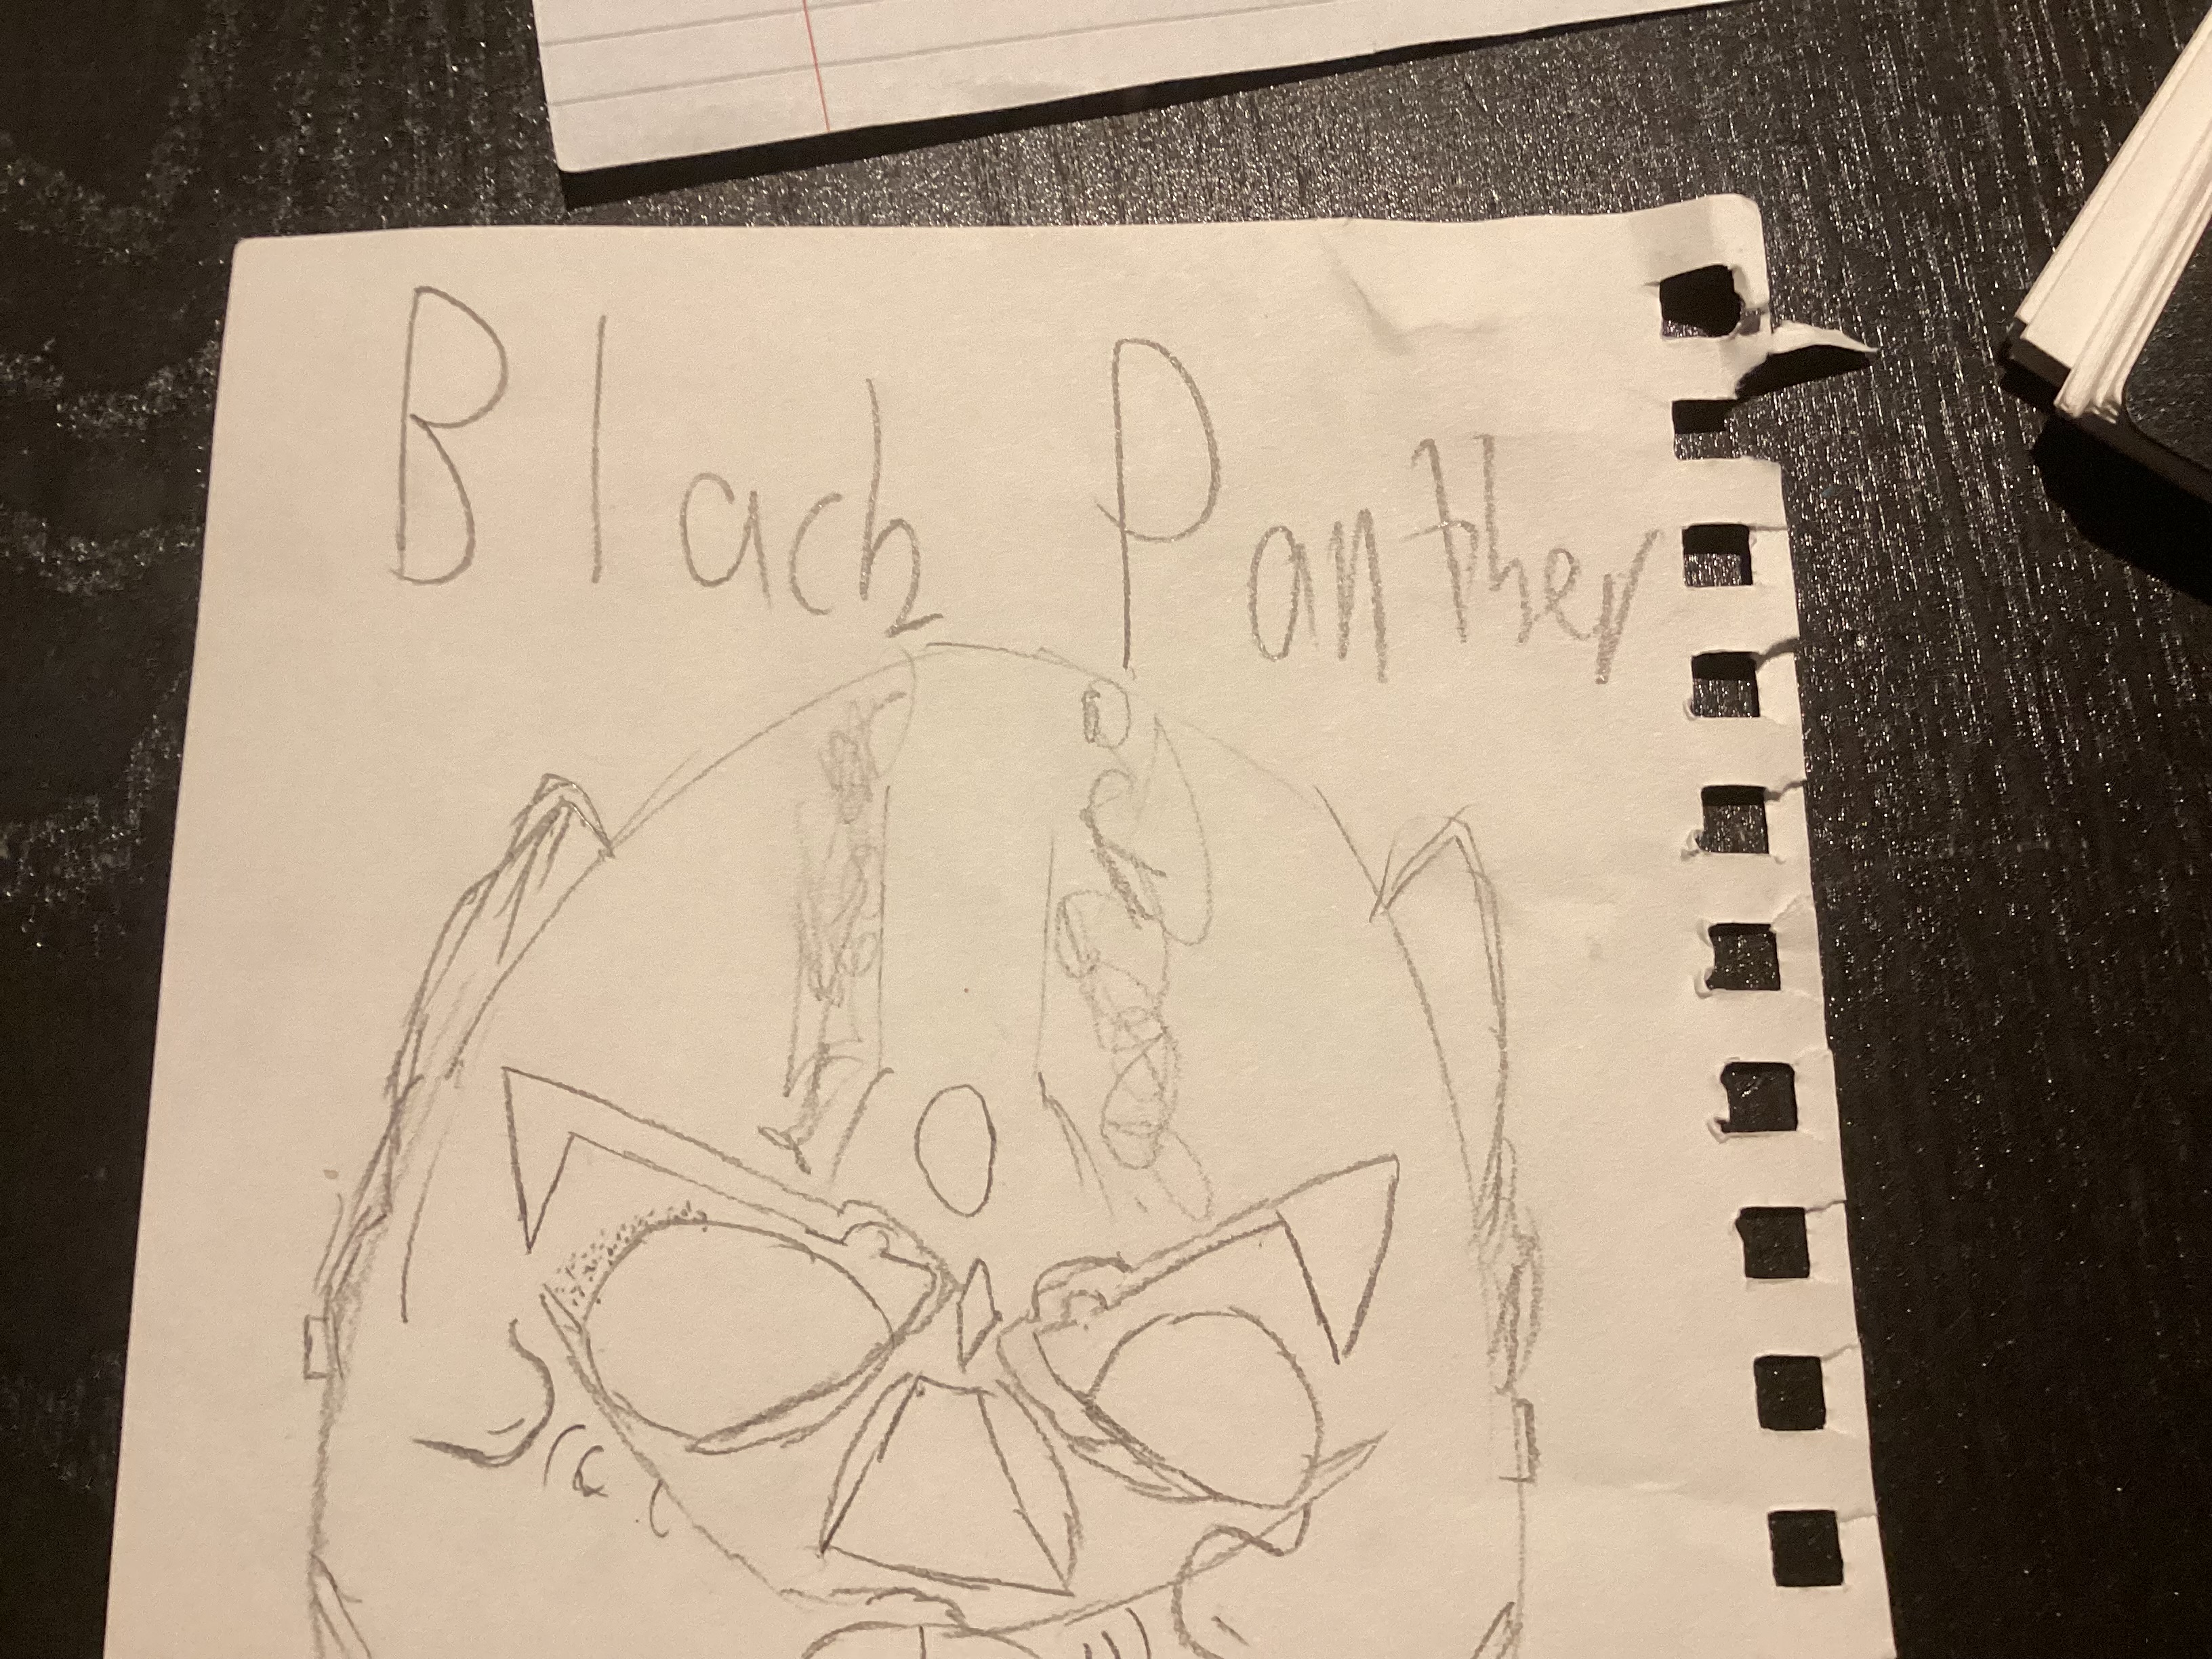 Black Panther